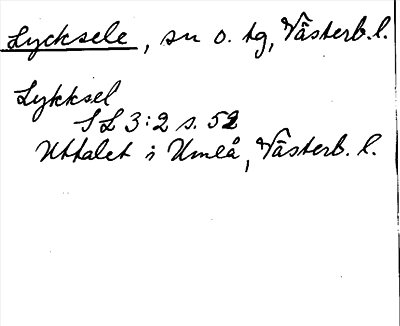 Lycksele, sn o. tg, Västerb. l.
Lykksel
SL 3:2 s. 52
Uttalet i Umeå, Västerb. l.